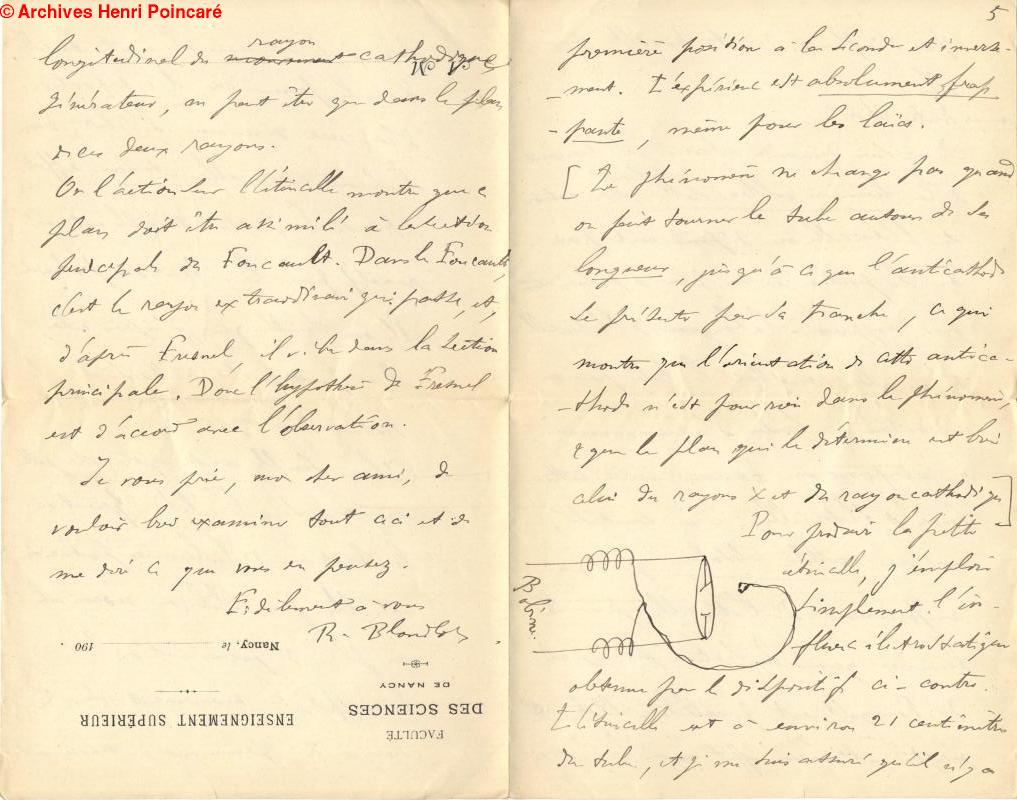 © Archives Henri Poincaré
longitudinal du rayon mouvement cathodique
générateur, ne peut être que dans le plan
de ces deux rayons.
Or l'action sur l'étincelle montre que ce
plan doit être assimilé à la section
principale du Foucault. Dans le Foucault,
c'est le rayon extraordinaire qui passe, et,
d'après Fresnel, il vibre dans la section
principale. Donc l'hypothèse de Fresnel
est d'accord avec l'observation.
Je vous prie, mon cher ami, de
vouloir bien examiner tout ceci et de
me dire ce que vous en pensez.
Fidèlement à vous
R. Blondlot
Nancy, le 190
ENSEIGNEMENT SUPÉRIEUR
FACULTÉ
DES SCIENCES
DE NANCY
5
première position à la seconde et inverse-
-ment. L'expérience est absolument frap
-pante, même pour les laïcs.
[Le phénomène ne change pas quand
on fait tourner le tube autour de sa
longueur, jusqu'à ce que l'anticathode
se présente par sa tranche, ce qui
montre que l'orientation de cette antica-
-thode n'est pour rien dans le phénomène,
& que le plan qui le détermine est bien
celui du rayon X et du rayon cathodique]
Pour produire la petite
étincelle, j'emploie
simplement l'in-
fluence électrostatique
Bobine.
obtenue par le dispositif ci-contre.
L'étincelle est à environ 21 centimètres
du tube, et je me suis assuré qu'il n'y a